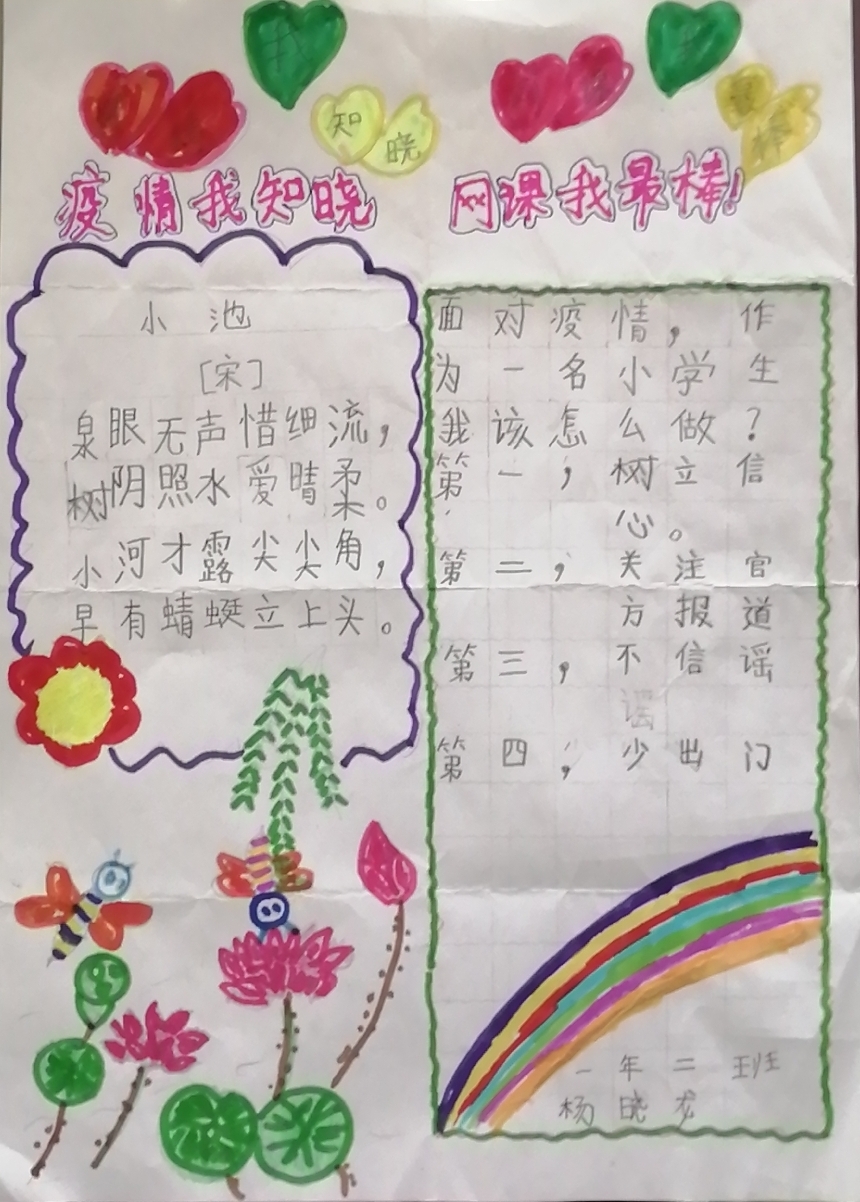 知
晓
棒
疫情我知晓
网课我最棒!
小池
[宋]
泉眼无声惜细流,
树阴照水爱晴柔。
小河才露尖尖角,
早有蜻蜓立上头。
面对疫情,作
为一名小学生
我该怎么做?
第一,树立信
心。
第二,关注官
方报道
第三,不信谣
谣
第四,少出门
一年二班
杨晓龙